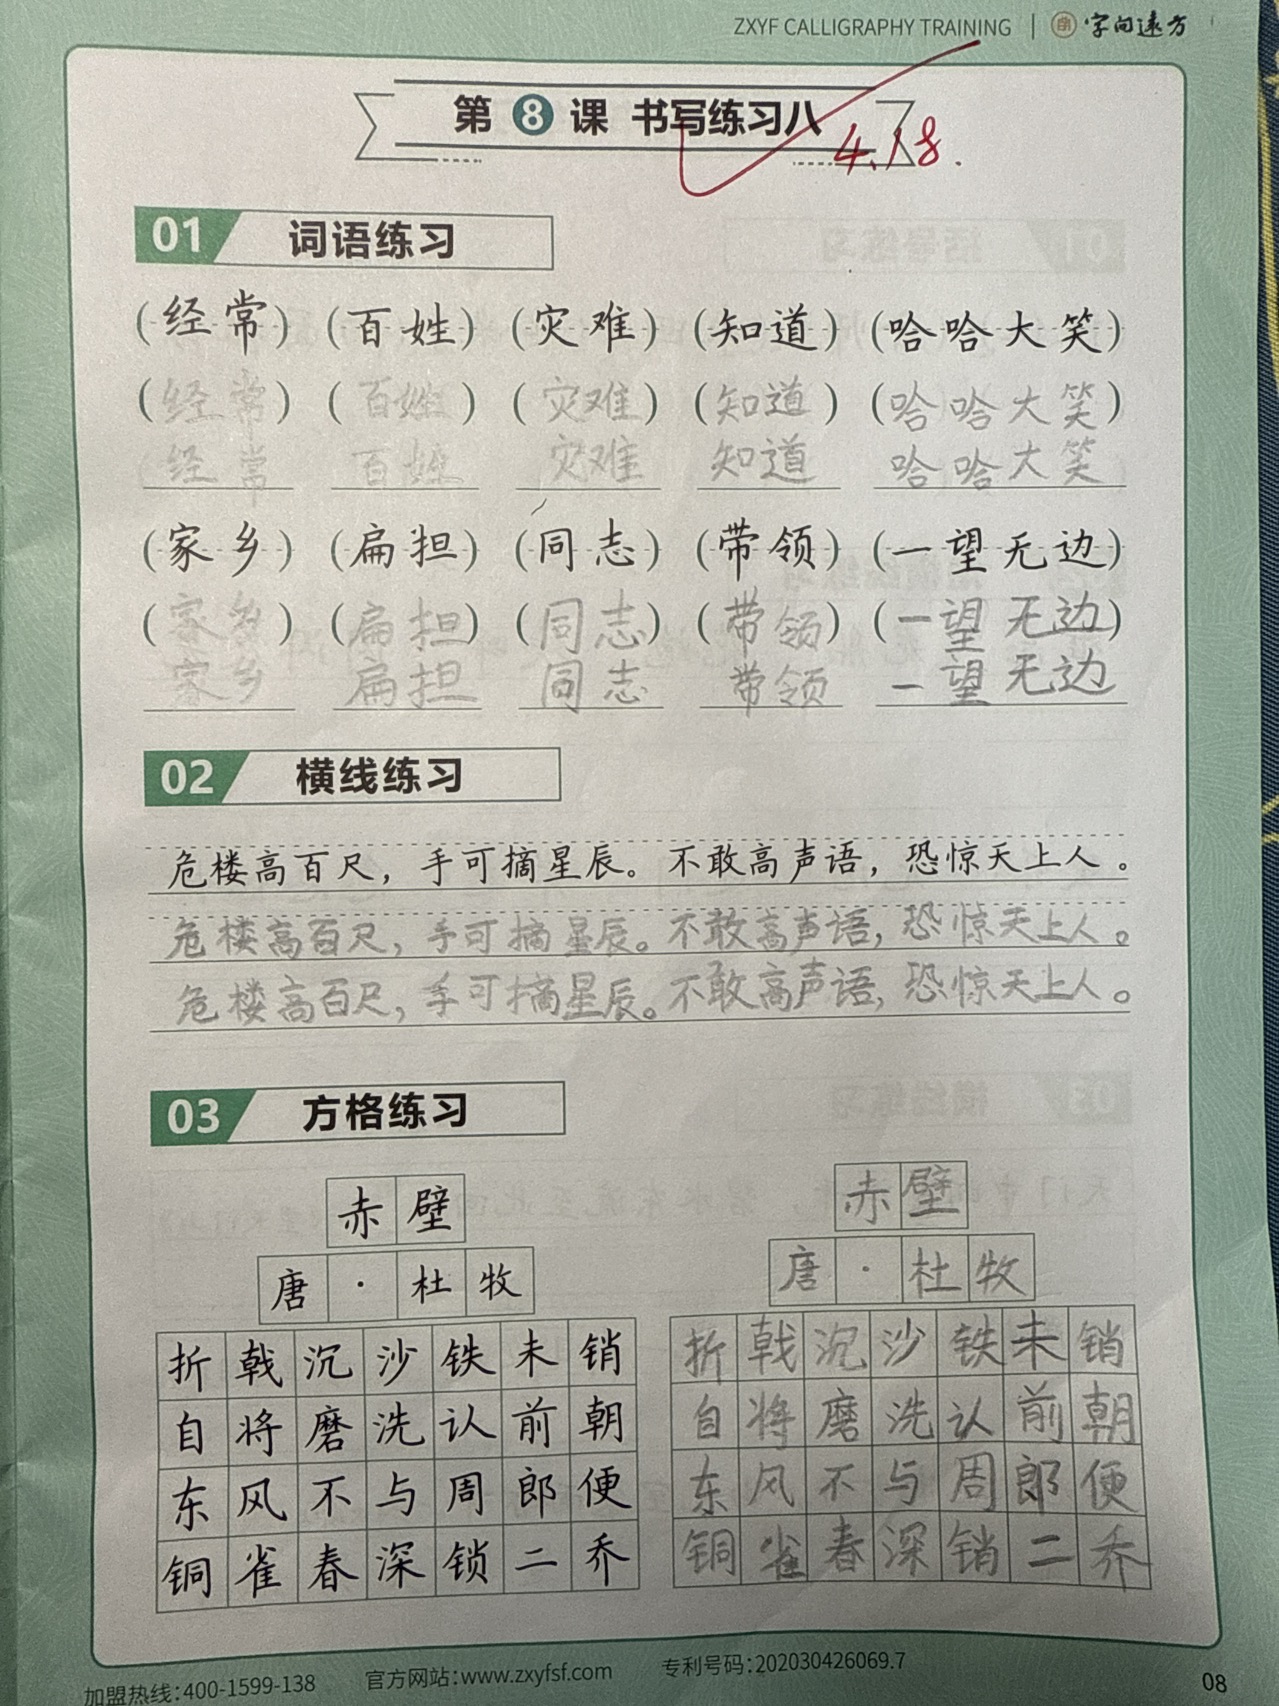 ZXYF CALLIGRAPHY TRAINING 字向远方
第 8 课 书写练习八
4.18.
01 词语练习
(经常) (百姓) (灾难) (知道) (哈哈大笑)
(经常) (百姓) (灾难) (知道) (哈哈大笑)
经常 百姓 灾难 知道 哈哈大笑
(家乡) (扁担) (同志) (带领) (一望无边)
(家乡) (扁担) (同志) (带领) (一望无边)
家乡 扁担 同志 带领 一望无边
02 横线练习
危楼高百尺，手可摘星辰。不敢高声语，恐惊天上人。
危楼高百尺，手可摘星辰。不敢高声语，恐惊天上人。
危楼高百尺，手可摘星辰。不敢高声语，恐惊天上人。
03 方格练习
赤壁
唐·杜牧
折戟沉沙铁未销
自将磨洗认前朝
东风不与周郎便
铜雀春深锁二乔
赤壁
唐·杜牧
折戟沉沙铁未销
自将磨洗认前朝
东风不与周郎便
铜雀春深销二乔
加盟热线:400-1599-138 官方网站:www.zxyfsf.com 专利号码:202030426069.7
08